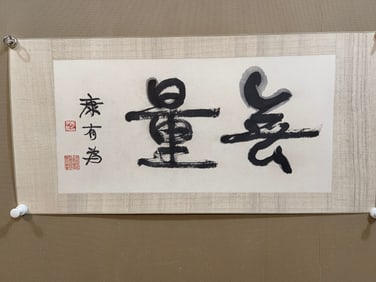 無量
康有為